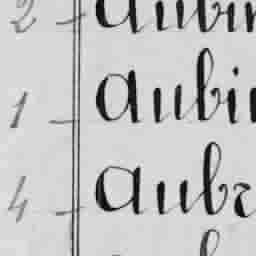 2 - Aubin
1 - Aubin
4 - Aubr